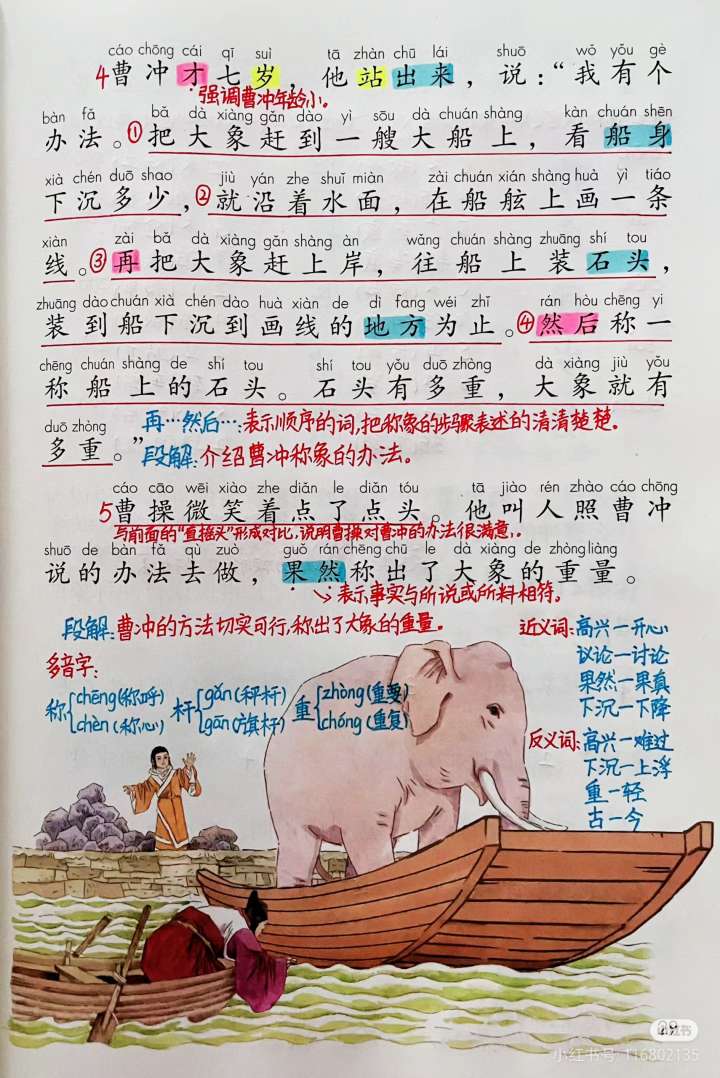 cáo chōng cái qī suì tā zhàn chū lái shuō wǒ yǒu gè
4曹冲才七岁，他站出来，说：“我有个
强调曹冲年龄小。
bàn fǎ bǎ dà xiàng gǎn dào yì sōu dà chuán shàng kàn chuán shēn
办法。①把大象赶到一艘大船上，看船身
xià chén duō shao jiù yán zhe shuǐ miàn zài chuán xián shàng huà yì tiáo
下沉多少，②就沿着水面，在船舷上画一条
xiàn zài bǎ dà xiàng gǎn shàng àn wǎng chuán shàng zhuāng shí tou
线。③再把大象赶上岸，往船上装石头，
zhuāng dào chuán xià chén dào huà xiàn de dì fang wéi zhǐ rán hòu chēng yi
装到船下沉到画线的地方为止。④然后称一
chēng chuán shàng de shí tou shí tou yǒu duō zhòng dà xiàng jiù yǒu
称船上的石头。石头有多重，大象就有
duō zhòng
多重。”
再…然后…：表示顺序的词，把称象的步骤表述的清清楚楚。
段解：介绍曹冲称象的办法。
cáo cāo wēi xiào zhe diǎn le diǎn tóu tā jiào rén zhào cáo chōng
5曹操微笑着点了点头。他叫人照曹冲
与前面的“直摇头”形成对比，说明曹操对曹冲的办法很满意。
shuō de bàn fǎ qù zuò guǒ rán chēng chū le dà xiàng de zhòng liàng
说的办法去做，果然称出了大象的重量。
表示事实与所说或所料相符。
段解：曹冲的方法切实可行，称出了大象的重量。
多音字：
称 chēng（称呼） chèn（称心）
杆 gǎn（秤杆） gān（旗杆）
重 zhòng（重要） chóng（重复）
近义词：高兴—开心
议论—讨论
果然—果真
下沉—下降
反义词：高兴—难过
下沉—上浮
重—轻
古—今
小红书号：116802135